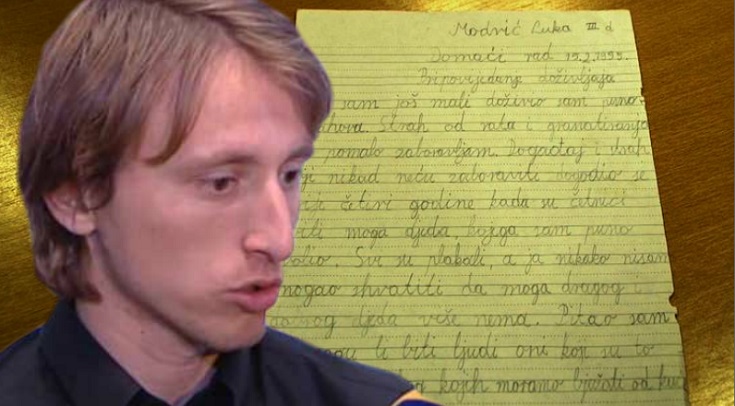 Modrić Luka III d
Domaći rad 15.2.1995.
Pripovijedanje doživljaja
sam još mali doživio sam puno
Strah od rata i granatiranja
pomalo zaboravljam. Događaj i strah
nikad neću zaboraviti dogodio se
četiri godine kada su četnici
moga djeda, kojega sam puno
Svi su plakali, a ja nikako nisam
mogao shvatiti da moga dragog i
djeda više nema. Pitao sam
li biti ljudi oni koji su to
kojih moramo bježati od